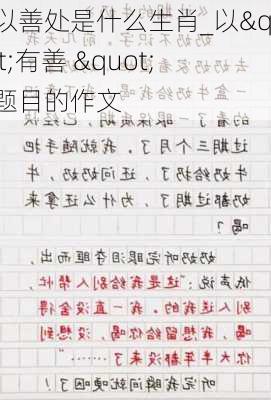 以善处是什么生肖_以&q
t;有善 &quot;
题目的作文
的看了一眼保质期，已经快
过期三个月了。我就随手把
牛奶扔了，还问奶奶，牛
奶都过期了，为什么还拿来
喝？
奶奶听完眼泪夺眶而出，
低声说："这是我给别人帮忙，
别人送我的。我一直没舍得
喝，我想留给你喝，没想到
你大半年都没来了……"
听完我瞬间就哽咽了！